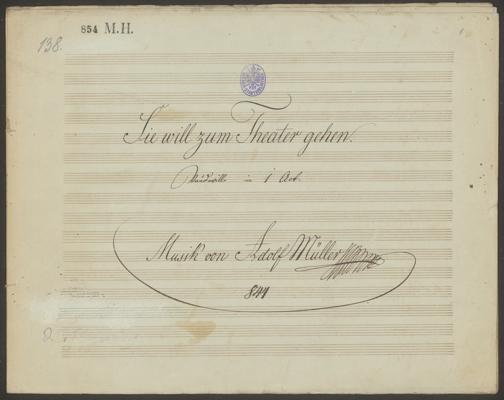 138.
854 M.H.
Sie will zum Theater gehen.
Vaudeville in 1 Act.
Musik von Adolf Müller
841